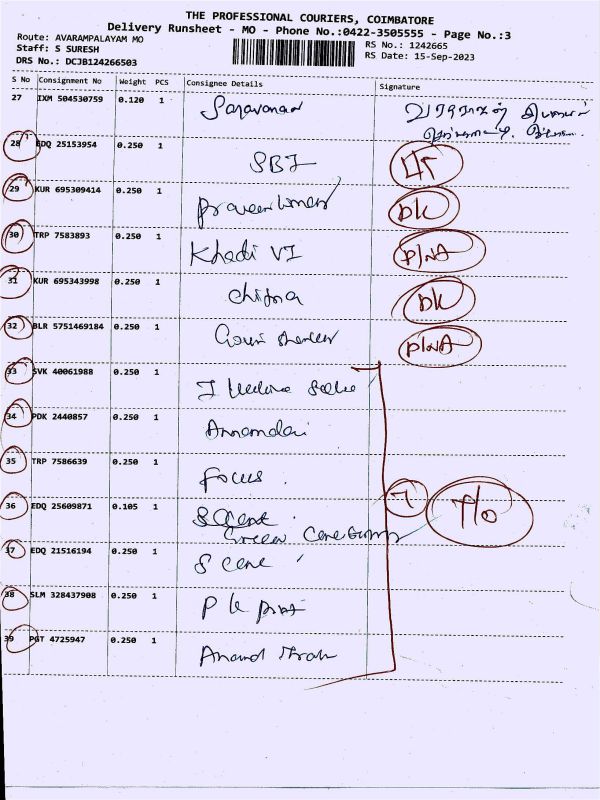 THE PROFESSIONAL COURIERS, COIMBATORE
Delivery Runsheet - MO - Phone No.:0422-3505555 - Page No.:3
Route: AVARAMPALAYAM MO RS No.: 1242665
Staff: S SURESH RS Date: 15-Sep-2023
DRS No.: DCJB124266503
S No Consignment No Weight PCS Consignee Details Signature
27 IXM 504530759 0.120 1 Saravanan
28 EDQ 25153954 0.250 1 SBI
29 KUR 695309414 0.250 1 DK
30 TRP 7583893 0.250 1 Khadi VI P/NA
31 KUR 695343998 0.250 1 Chitra DK
32 BLR 5751469184 0.250 1 P/NA
33 SVK 40061988 0.250 1
34 PDK 2440857 0.250 1 Annamalai
35 TRP 7586639 0.250 1 Focus
36 EDQ 25609871 0.105 1 7 T/O
Green
37 EDQ 21516194 0.250 1
38 SLM 328437908 0.250 1 P K
39 PGT 4725947 0.250 1 Anand